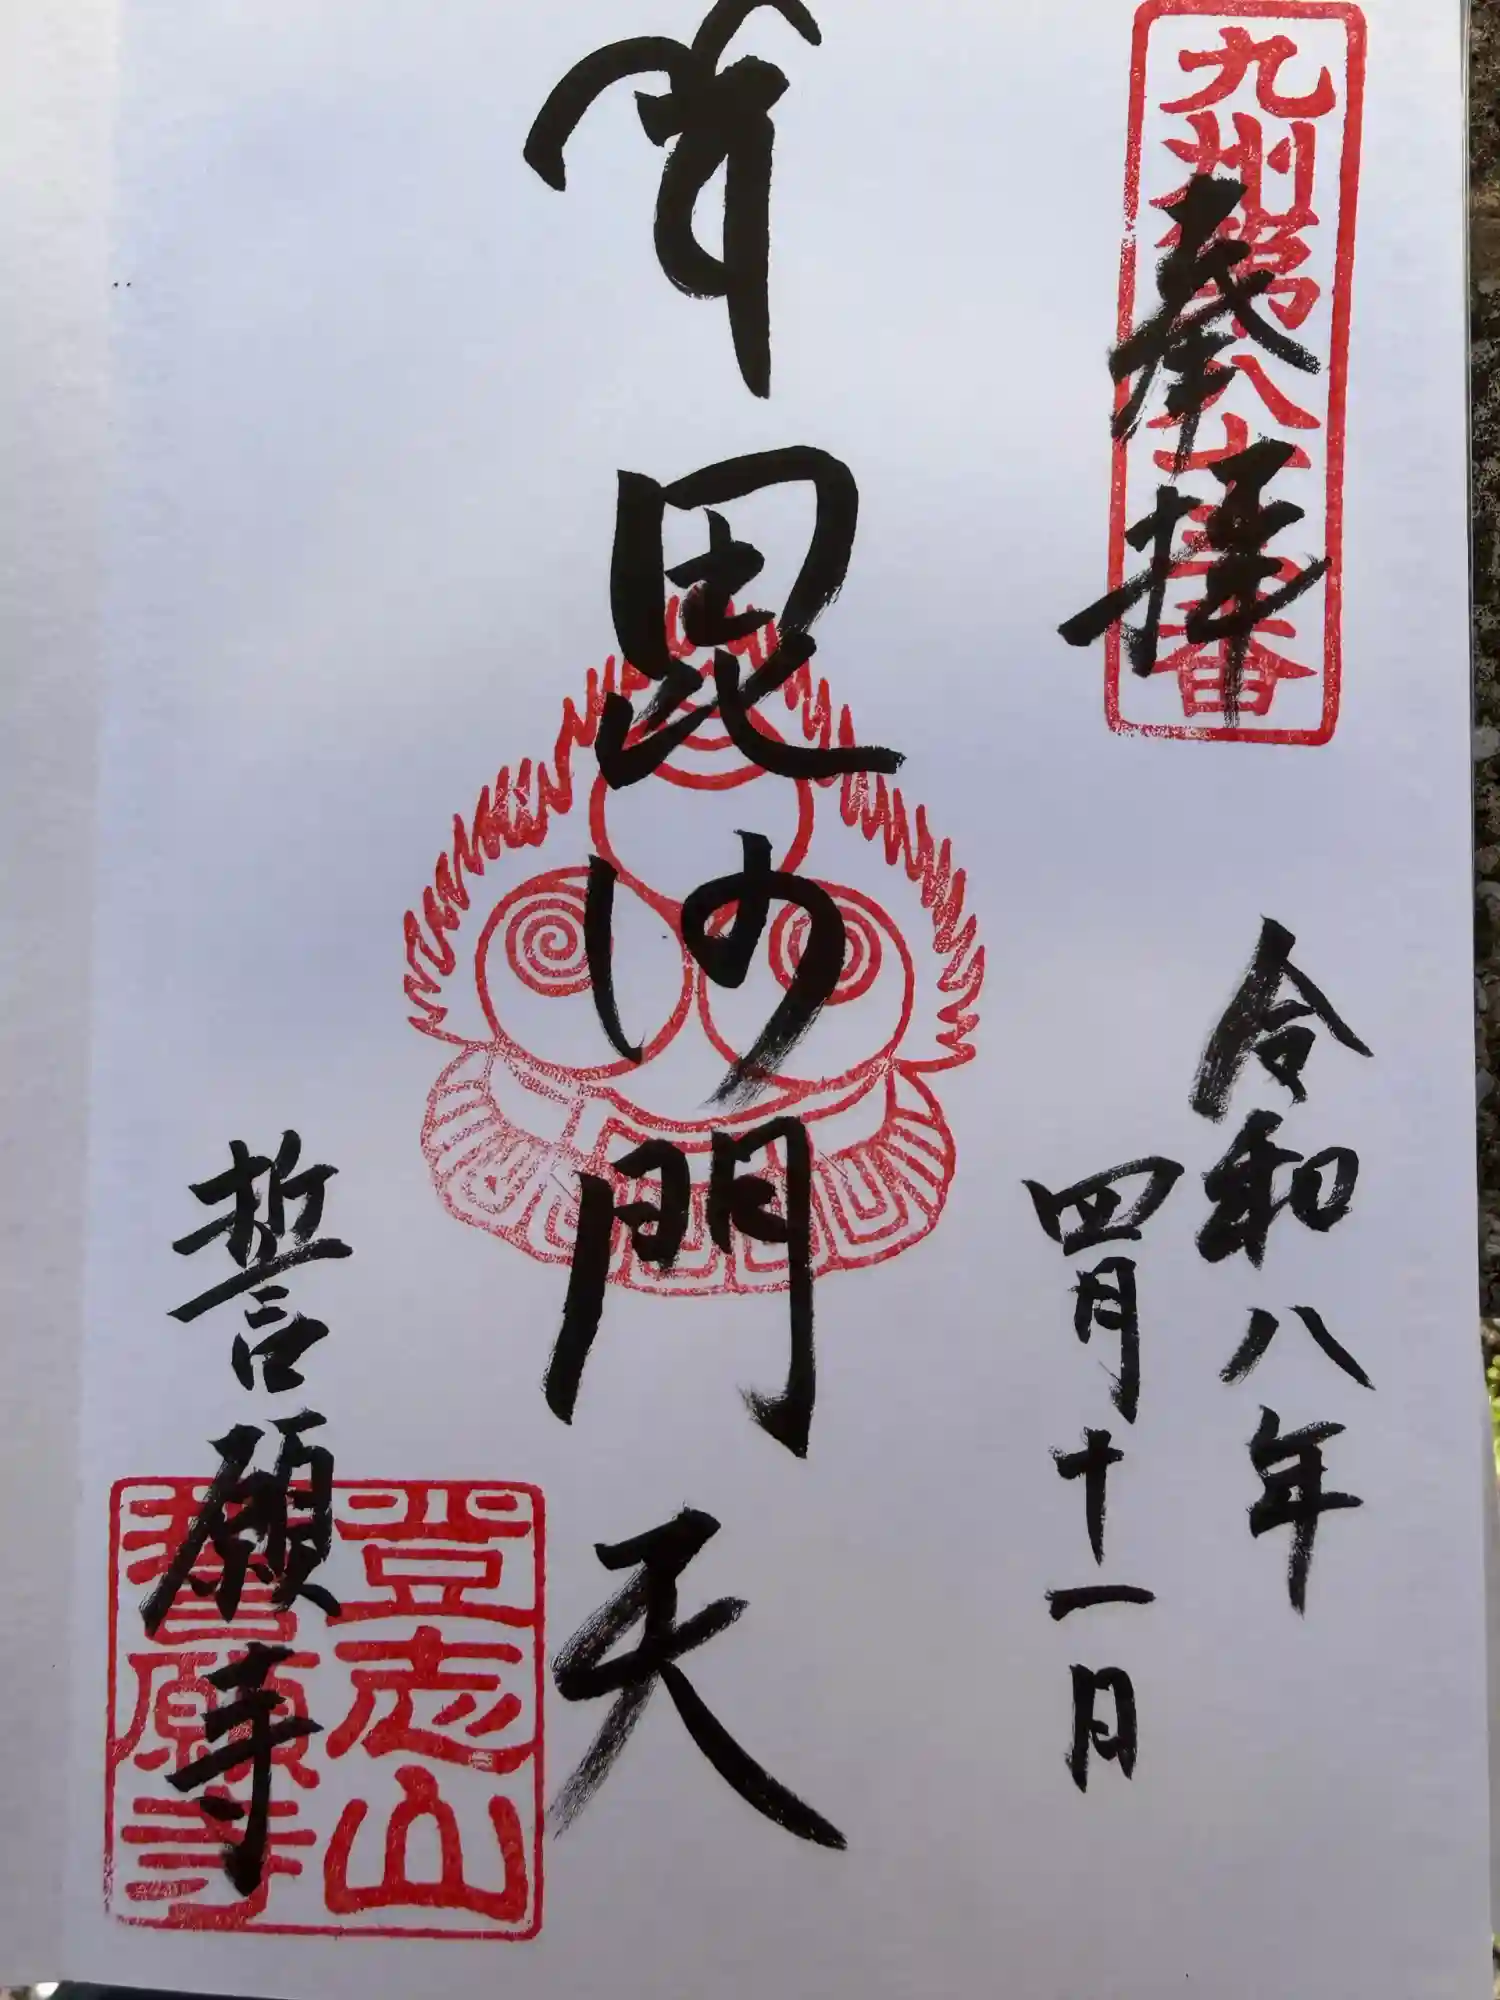 奉拝
九州第八十番
令和八年
四月十一日
毘沙門天
誓願寺
登志山
誓願寺